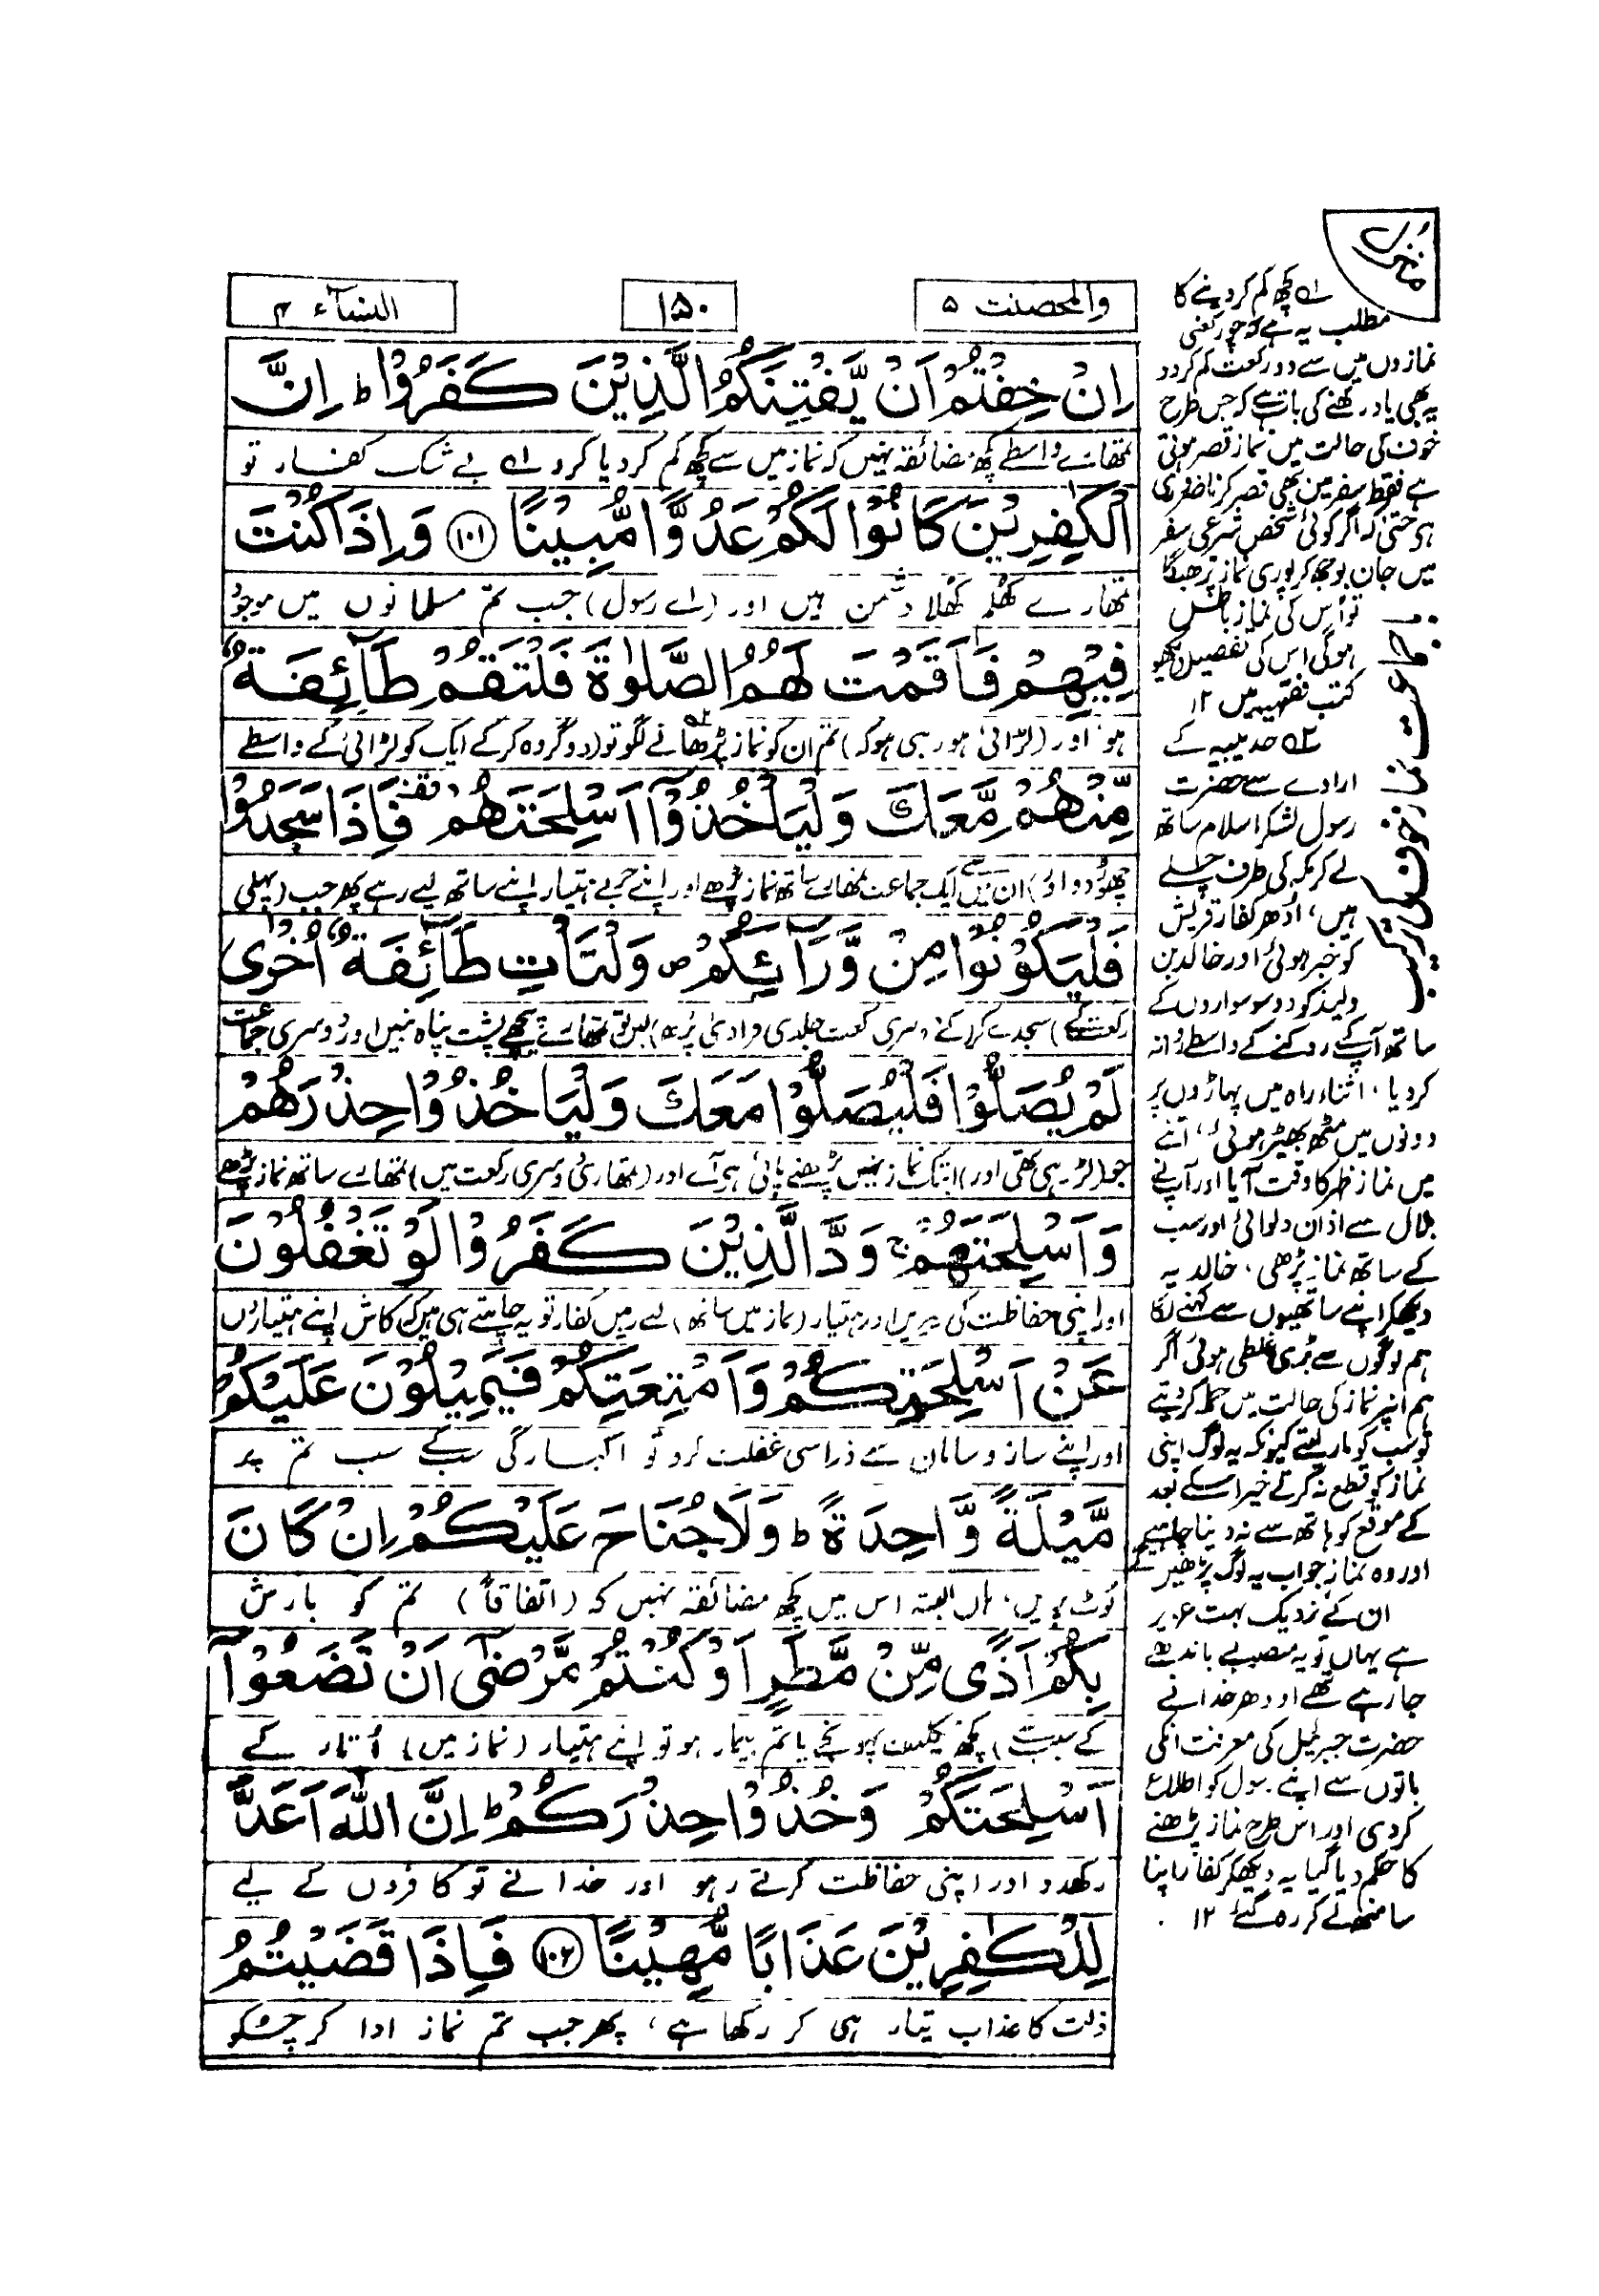 والمحصنت ۵
۱۵۰
النسآء ۴
اِنْ خِفْتُمْ اَنْ يَّفْتِنَكُمُ الَّذِيْنَ كَفَرُوْا ؕ اِنَّ
تمھارے واسطے کچھ مضائقہ نہیں کہ نماز میں سے کچھ کم کر دیا کرو ۱ بے شک کفار تو
الْكٰفِرِيْنَ كَانُوْا لَكُمْ عَدُوًّا مُّبِيْنًا ۱۰۱ وَاِذَا كُنْتَ
تمھارے کھلم کھلا دشمن ہیں اور (اے رسول) جب تم مسلمانوں میں موجود
فِيْهِمْ فَاَقَمْتَ لَهُمُ الصَّلٰوةَ فَلْتَقُمْ طَآئِفَةٌ
ہو اور (لڑائی ہو رہی ہو کہ) تم ان کو نماز پڑھانے ۲ لگو تو (دو گروہ کر کے ایک کو لڑائی کے واسطے
مِّنْهُمْ مَّعَكَ وَلْيَاْخُذُوْٓا اَسْلِحَتَهُمْ قف فَاِذَا سَجَدُوْا
چھوڑ دو اور) ان میں سے ایک جماعت تمھارے ساتھ نماز پڑھے اور اپنے حربے ہتیار اپنے ساتھ لیے رہے پھر جب (پہلی
فَلْيَكُوْنُوْا مِنْ وَّرَآئِكُمْ ص وَلْتَاْتِ طَآئِفَةٌ اُخْرٰى
رکعت کے) سجدے کر کے دوسری رکعت جلدی فرادیٰ پڑھ) لیں تو تمھارے پیچھے پشت پناہ بنیں اور دوسری جماعت
لَمْ يُصَلُّوْا فَلْيُصَلُّوْا مَعَكَ وَلْيَاْخُذُوْا حِذْرَهُمْ
جو (لڑ رہی تھی اور) اب تک نماز نہیں پڑھنے پائی ہے آئے اور (تمھاری دوسری رکعت میں) تمھارے ساتھ نماز پڑھے
وَاَسْلِحَتَهُمْ ج وَدَّ الَّذِيْنَ كَفَرُوْا لَوْ تَغْفُلُوْنَ
اور اپنی حفاظت کی چیزیں اور ہتیار (نماز میں ساتھ) لیے رہیں کفار تو یہ چاہتے ہی ہیں کہ کاش اپنے ہتیاروں
عَنْ اَسْلِحَتِكُمْ وَاَمْتِعَتِكُمْ فَيَمِيْلُوْنَ عَلَيْكُمْ
اور اپنے ساز و سامان سے ذرا سی غفلت کرو تو اکبارگی سب کے سب تم پر
مَّيْلَةً وَّاحِدَةً ؕ وَلَا جُنَاحَ عَلَيْكُمْ اِنْ كَانَ
ٹوٹ پڑیں، ہاں البتہ اس میں کچھ مضائقہ نہیں کہ (اتفاقاً) تم کو بارش
بِكُمْ اَذًى مِّنْ مَّطَرٍ اَوْ كُنْتُمْ مَّرْضٰٓى اَنْ تَضَعُوْٓا
کے سبب سے) کچھ تکلیف پہونچے یا تم بیمار ہو تو اپنے ہتیار (نماز میں) اُتار کے
اَسْلِحَتَكُمْ وَخُذُوْا حِذْرَكُمْ ؕ اِنَّ اللّٰهَ اَعَدَّ
رکھدو اور اپنی حفاظت کرتے رہو اور خدا نے تو کافروں کے لیے
لِلْكٰفِرِيْنَ عَذَابًا مُّهِيْنًا ۱۰۲ فَاِذَا قَضَيْتُمُ
ذلت کا عذاب تیار ہی کر رکھا ہے، پھر جب تم نماز ادا کر چکو
منزل
۱ کچھ کم کر دینے کا
مطلب یہ ہے کہ چو رکعتی
نمازوں میں سے دو رکعت کم کردو
یہ بھی یاد رکھنے کی بات ہے کہ جس طرح
خوف کی حالت میں نماز قصر ہوتی
ہے فقط سفر میں بھی قصر کرنا ضروری
ہے حتیٰ کہ اگر کوئی شخص شرعی سفر
میں جان بوجھ کر پوری نماز پڑھیگا
تو اس کی نماز باطل
ہوگی اس کی تفصیل دیکھو
کتب فقہیہ میں ۱۲
۲ حدیبیہ کے
ارادے سے حضرت
رسول لشکر اسلام ساتھ
لے کر مکہ کی طرف چلے
ہیں، اُدھر کفار قریش
کو خبر ہوئی اور خالد بن
ولید کو دو سو سواروں کے
ساتھ آپ کے روکنے کے واسطے روانہ
کر دیا، اثناء راہ میں پہاڑوں پر
دونوں میں مٹھ بھیڑ ہوئی، اتنے
میں نماز ظہر کا وقت آیا اور آپ نے
بلال سے اذان دلوائی اور سب
کے ساتھ نماز پڑھی، خالد یہ
دیکھکر اپنے ساتھیوں سے کہنے لگا
ہم لوگوں سے بڑی غلطی ہوئی اگر
ہم انپر نماز کی حالت میں حملہ کر دیتے
تو سب کو مار لیتے کیونکہ یہ لوگ اپنی
نماز کو قطع نہ کرتے خیر اسکے بعد
کے موقع کو ہاتھ سے نہ دینا چاہیے
اور وہ نماز جو اب یہ لوگ پڑھیں گے
ان کے نزدیک بہت عزیز
ہے یہاں تو یہ منصوبے باندھے
جا رہے تھے اودھر خدا نے
حضرت جبرئیل کی معرفت انکی
باتوں سے اپنے رسول کو اطلاع
کر دی اور اس طرح نماز پڑھنے
کا حکم دیا گیا یہ دیکھکر کفار اپنا
سا منھ لے کر رہ گئے ۱۲
نماز خوف کی ترکیب